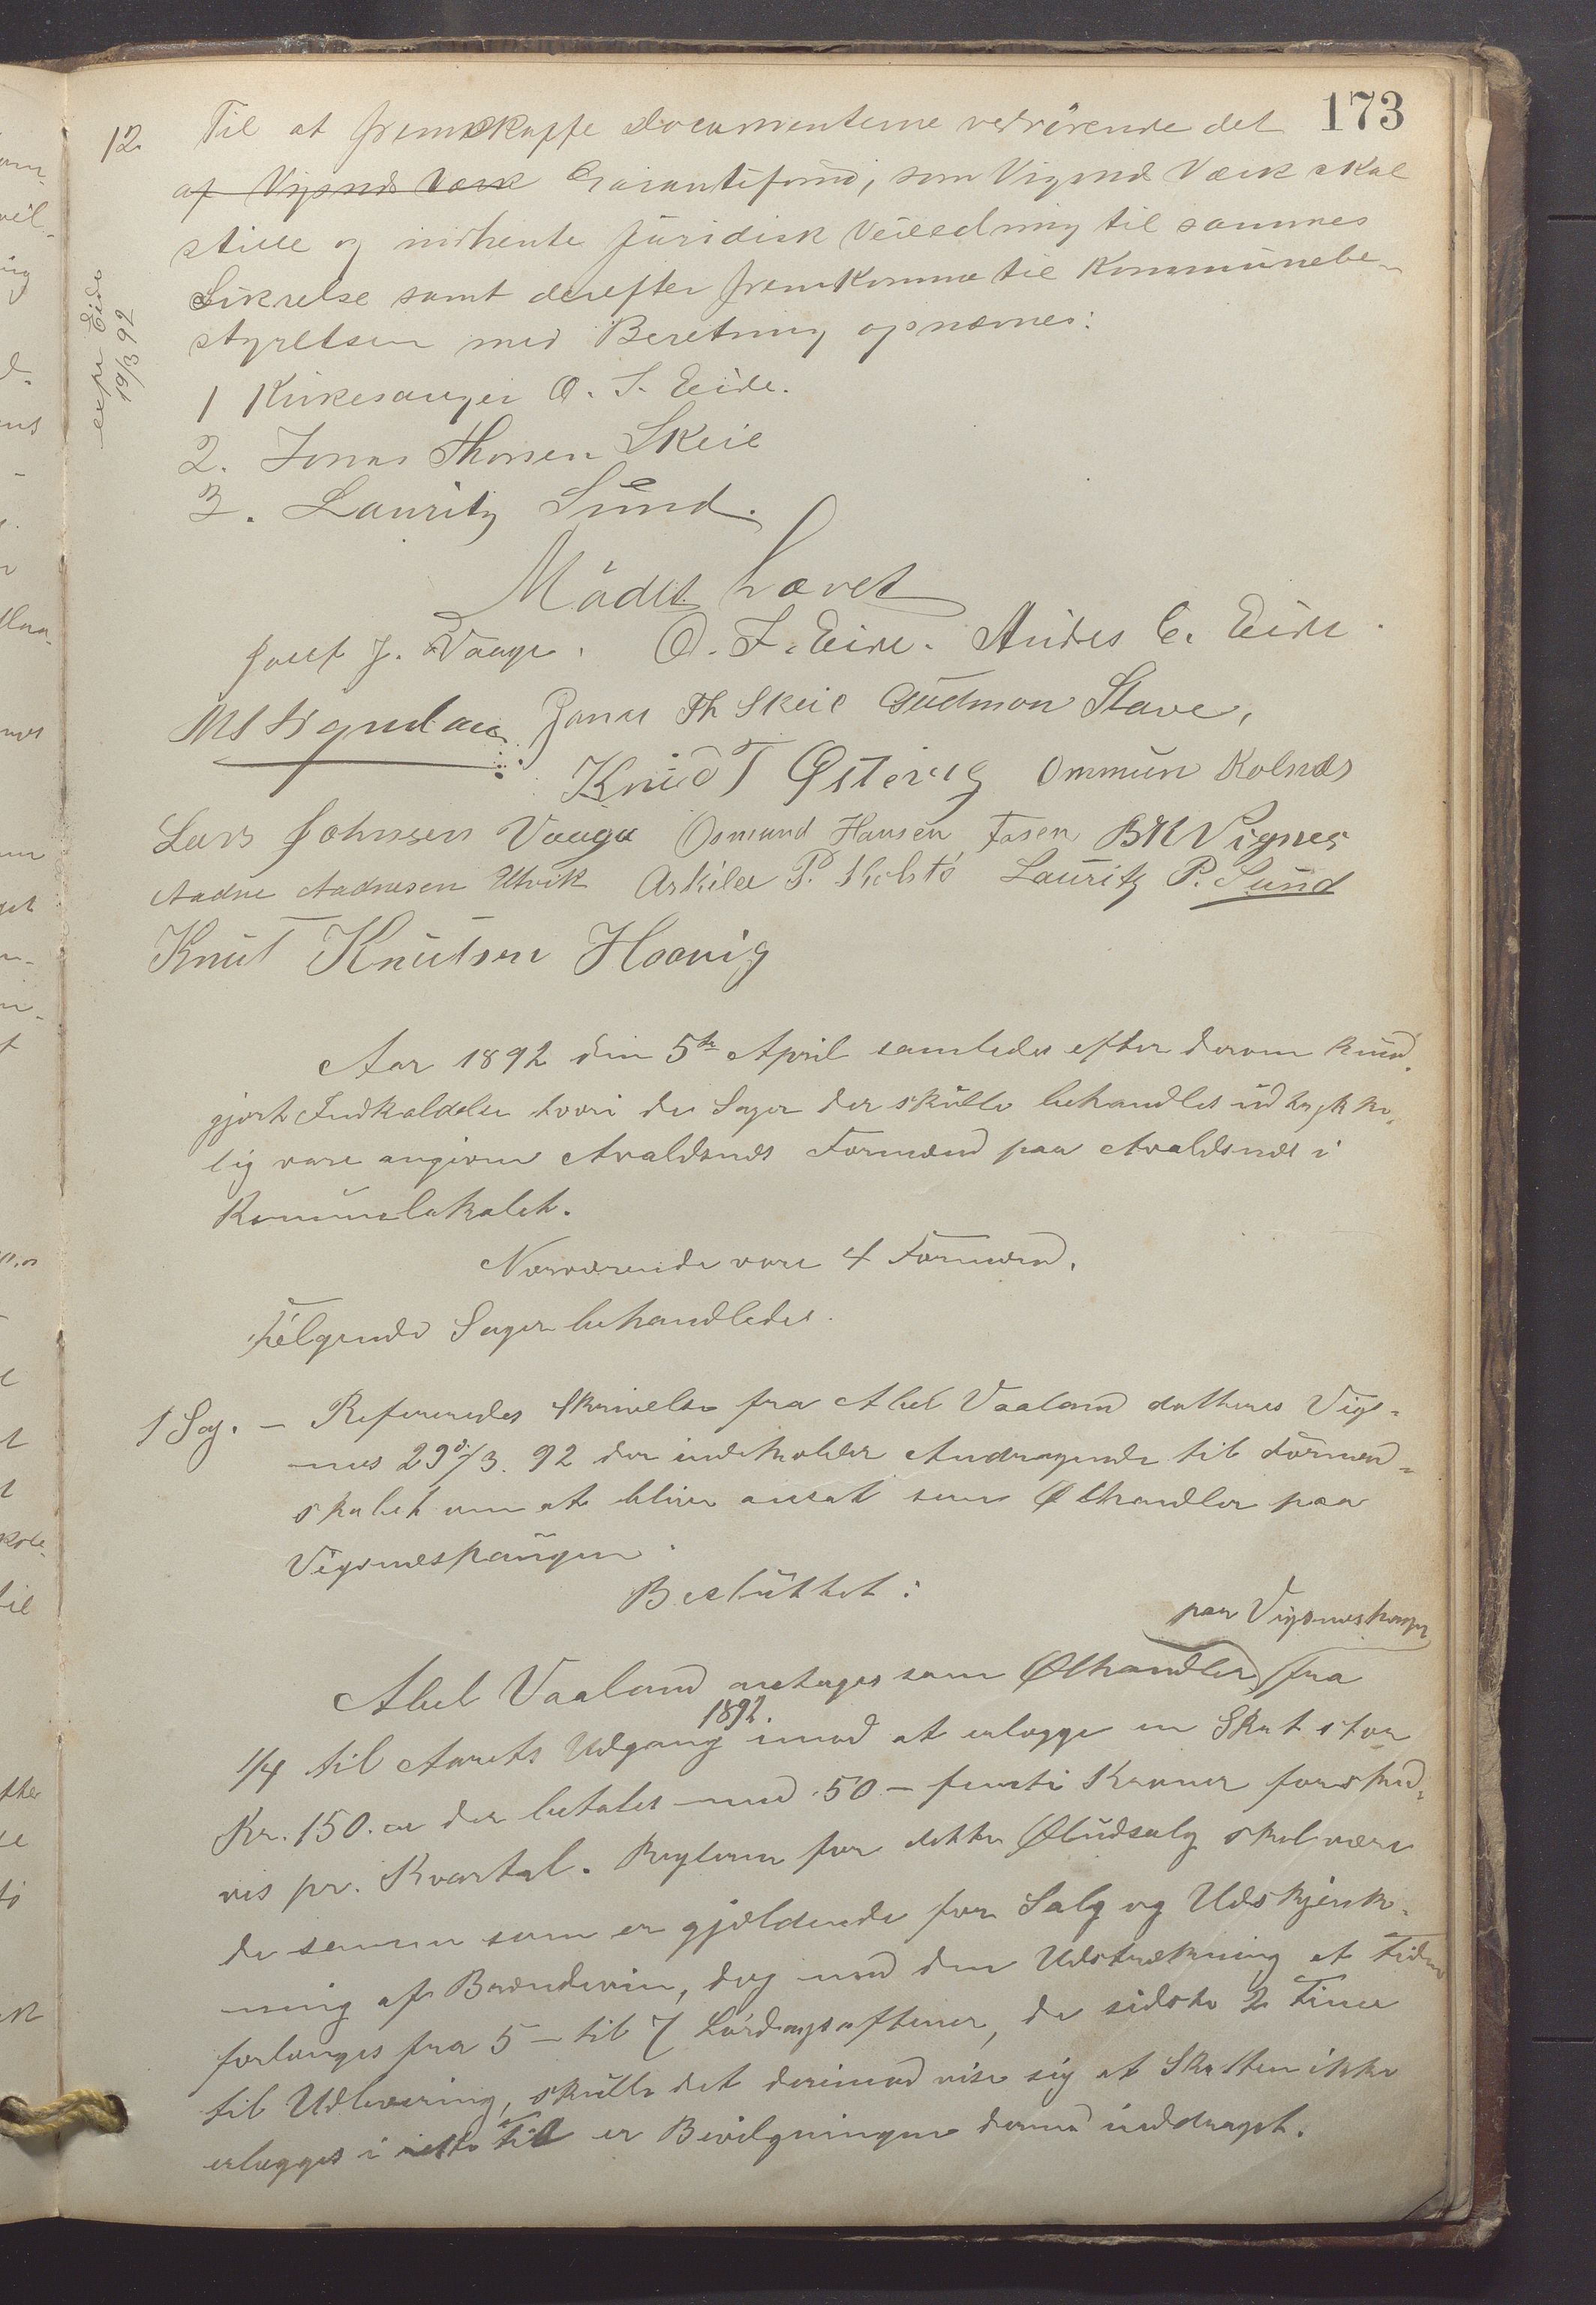 173
12. Til at fremskaffe Documenterne vedrörende det
af Vigsnes Værk Garantifond, som Vigsnes Værk skal
stille og indhente juridisk Veiledning til sammes
Sikrelse samt derefter fremkomme til Kommunebe-
styrelsen med Beretning opnævnes:
expr Eide
19/3 92
1 Kirkesanger O. S. Eide.
2. Jonas Thorsen Skeie
3. Lauritz Sund.
Mödet hævet
Josef J. Vaage. O. S. Eide. Anders C. Eide.
Jonas Th Skeie Gudmon Stave,
Knud T Østevig Ommun Kolnes
Lars Johnsen Vaaga Osmund Hansen Fosen BK Vignes
Aadne Aadnesen Utvik Askilee P. Kolstö Lauritz P. Sund
Knut Knutsen Haavig
Aar 1892 den 5te April samledes efter derom kund-
gjort Indkaldelse hvori de Sager der skulle behandles udtrykke-
lig vare angivne Avaldsnes Formænd paa Avaldsnes i
Kommunelokalet.
Nærværende vare 4 Formænd.
Fölgende Sager behandledes.
1 Sag. – Refereredes Skrivelse fra Abel Vaaland dateres Vigs-
nes 29/3. 92 der indeholder Andragende til Formend-
skabet om at bliver ansat som Ølhandler paa
Vigsnespaugen.
Besluttet:
paa Vigsneshaugen
Abel Vaaland antages som Ølhandler fra
1/4 til Aarets Udgang 1892. imod at erlægge en Skat stor
Kr. 150.00 der betales med 50 – femti Kroner forskud-
vis pr. Kvartal. Reglerne for dette Øludsalg skal være
de samme som er gjældende for Salg og Udskjænk-
ning af Brændevin, dog med den Udstrækning at Tiden
forlænges fra 5 – til 7 Lördagsaftener, de sidste 2 Timer
til Udlevering, skulle det derimod vise sig at Skatten ikke
erlægges i rette Tid er Bevilgningen dermed inddraget.